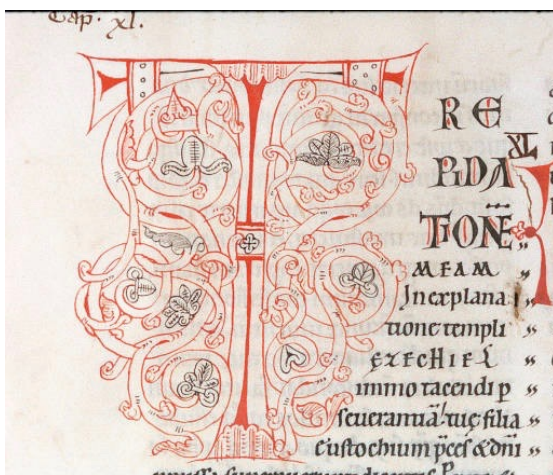 Cap. xl.
T
RE
PIDA
XL
TIONĒ
MEAM
In explana
tione templi
EZECHIEL
immo tacendi p
seuerantiā tuę filia
Eustochium pces & dn̄i